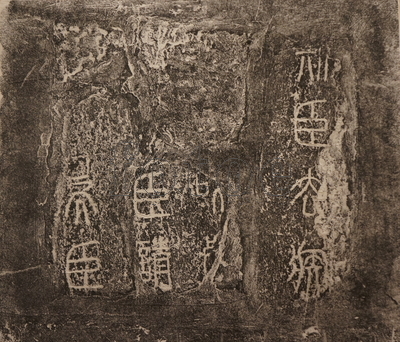 斯臣去疾
昧死
臣請
矣臣